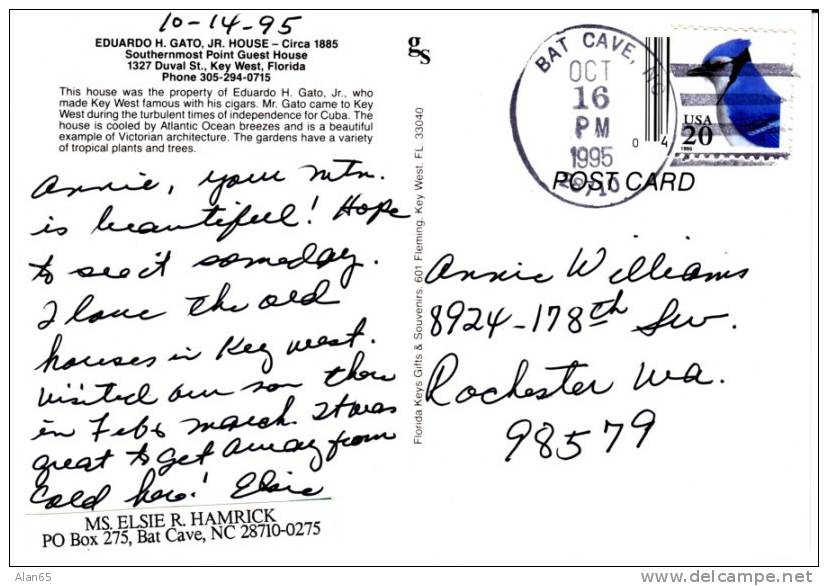 10-14-95
EDUARDO H. GATO, JR. HOUSE – Circa 1885
Southernmost Point Guest House
1327 Duval St., Key West, Florida
Phone 305-294-0715
This house was the property of Eduardo H. Gato, Jr., who
made Key West famous with his cigars. Mr. Gato came to Key
West during the turbulent times of independence for Cuba. The
house is cooled by Atlantic Ocean breezes and is a beautiful
example of Victorian architecture. The gardens have a variety
of tropical plants and trees.
Annie, your mtn.
is beautiful! Hope
to see it someday.
I love the old
houses in Key West.
Visited our son there
in Feb & March. It was
great to get away from
cold here! Elsie
MS. ELSIE R. HAMRICK
PO Box 275, Bat Cave, NC 28710-0275
gs
Florida Keys Gifts & Souvenirs, 601 Fleming, Key West, FL. 33040
BAT CAVE, NC
OCT
16
PM
1995
28710
USA
20
1995
0 4
POST CARD
Annie Williams
8924-178th Sw.
Rochester Wa.
98579
Alan65
www.delcampe.net